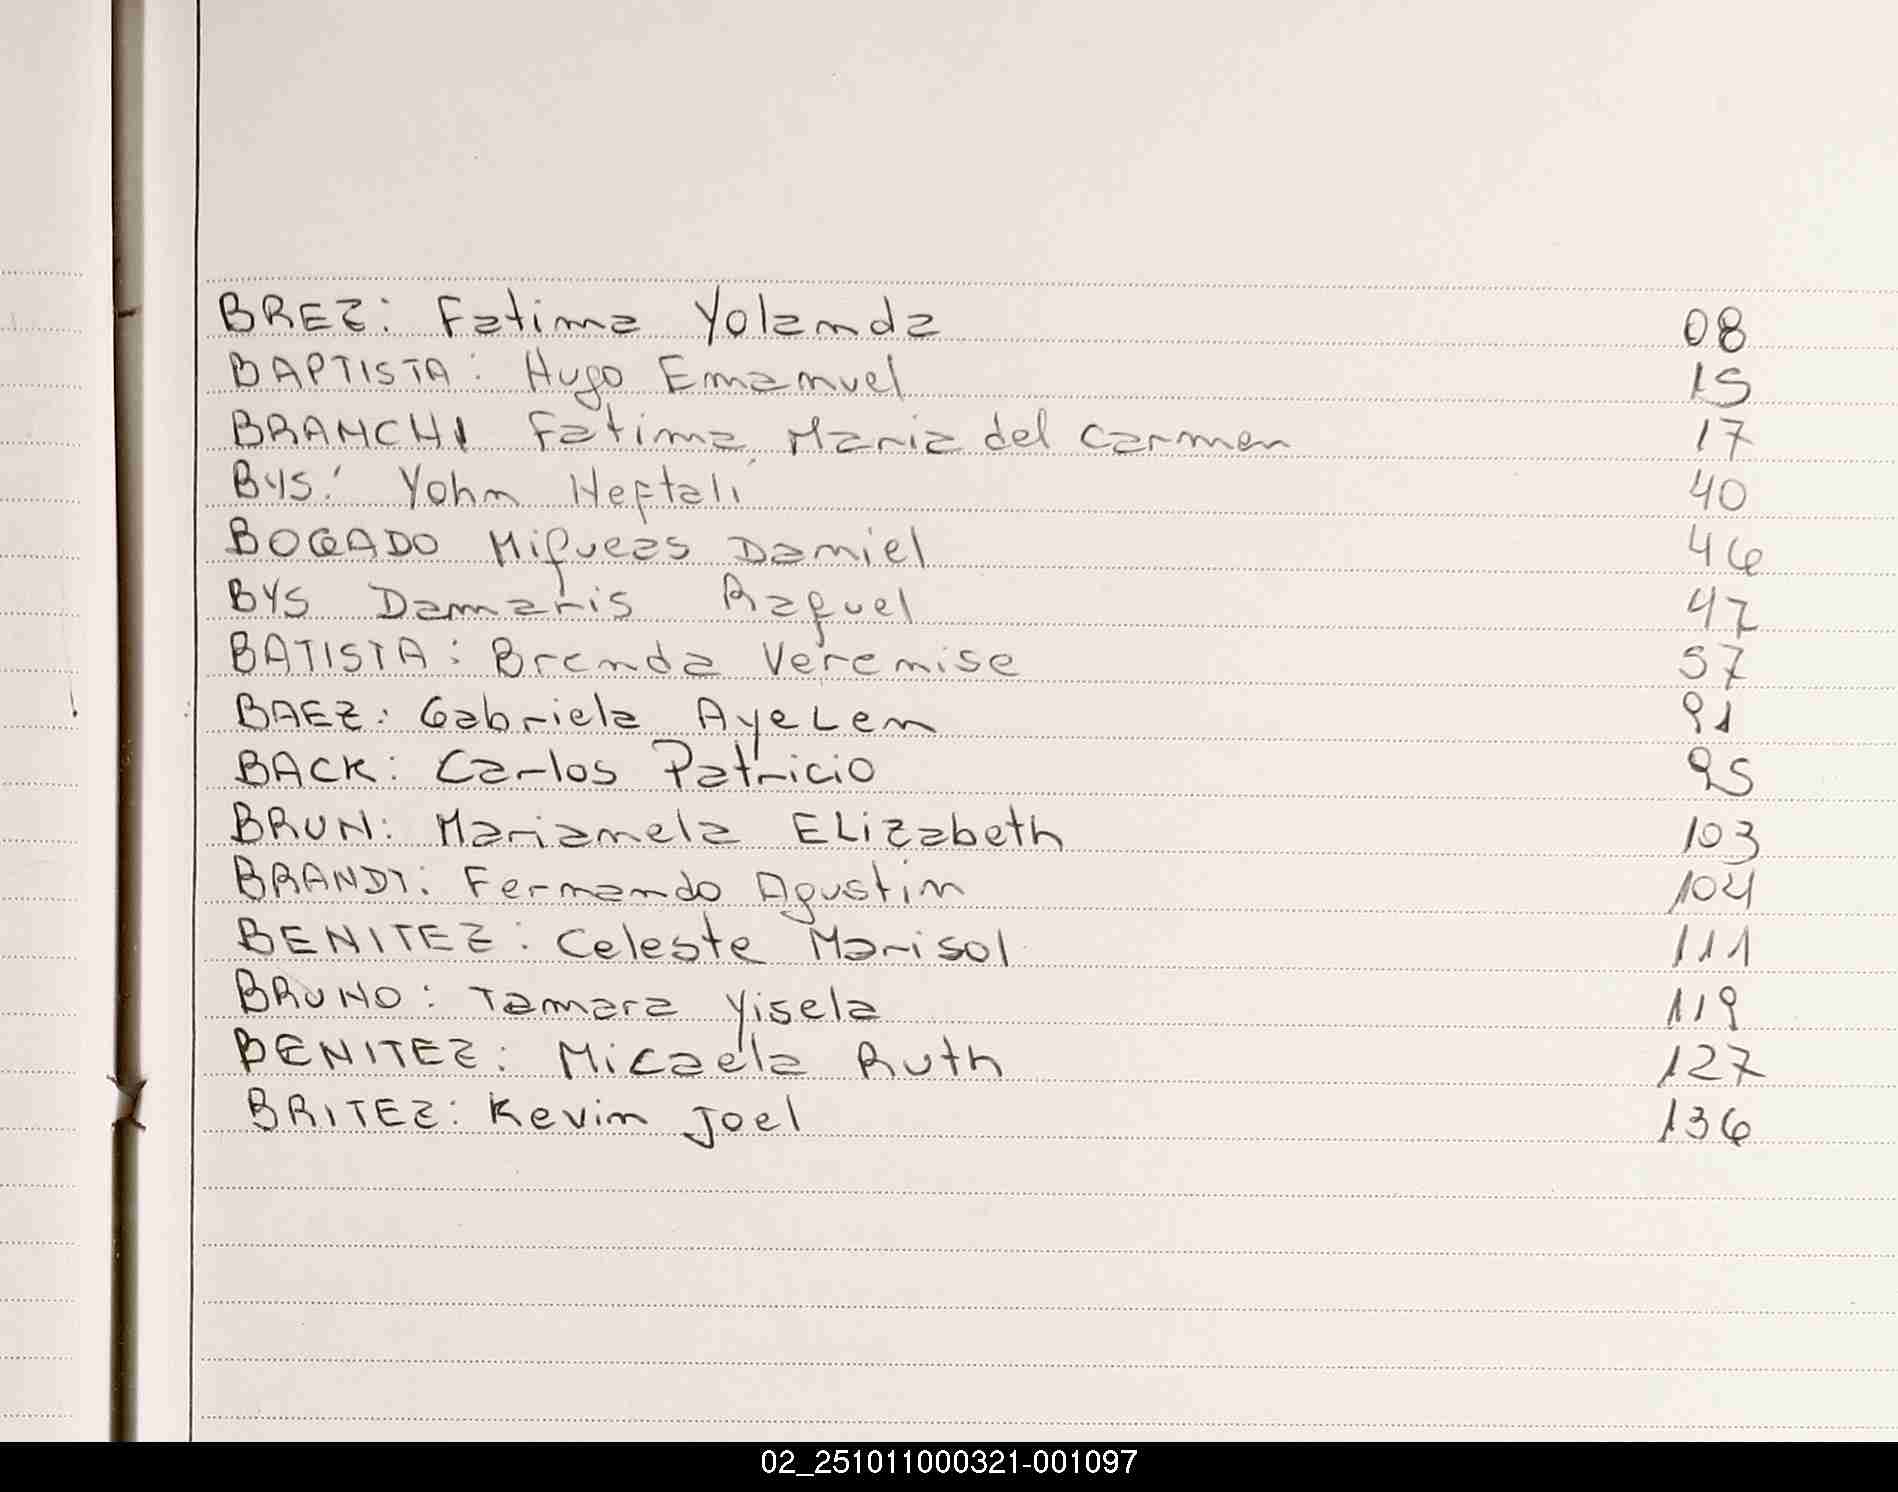 BREZ: Fatima Yolanda 08
BAPTISTA: Hugo Emanuel 15
BRANCHI Fatima Maria del carmen 17
BYS: Yohn Neftali 40
BOGADO Miqueas Daniel 46
BYS Damaris Raquel 47
BATISTA: Brenda Verenise 57
BAEZ: Gabriela Ayelen 91
BACK: Carlos Patricio 95
BRUN: Marianela Elizabeth 103
BRANDT: Fernando Agustin 104
BENITEZ: Celeste Marisol 111
BRUNO: Tamara Yisela 119
BENITEZ: Micaela Ruth 127
BRITEZ: Kevin Joel 136
02_251011000321-001097